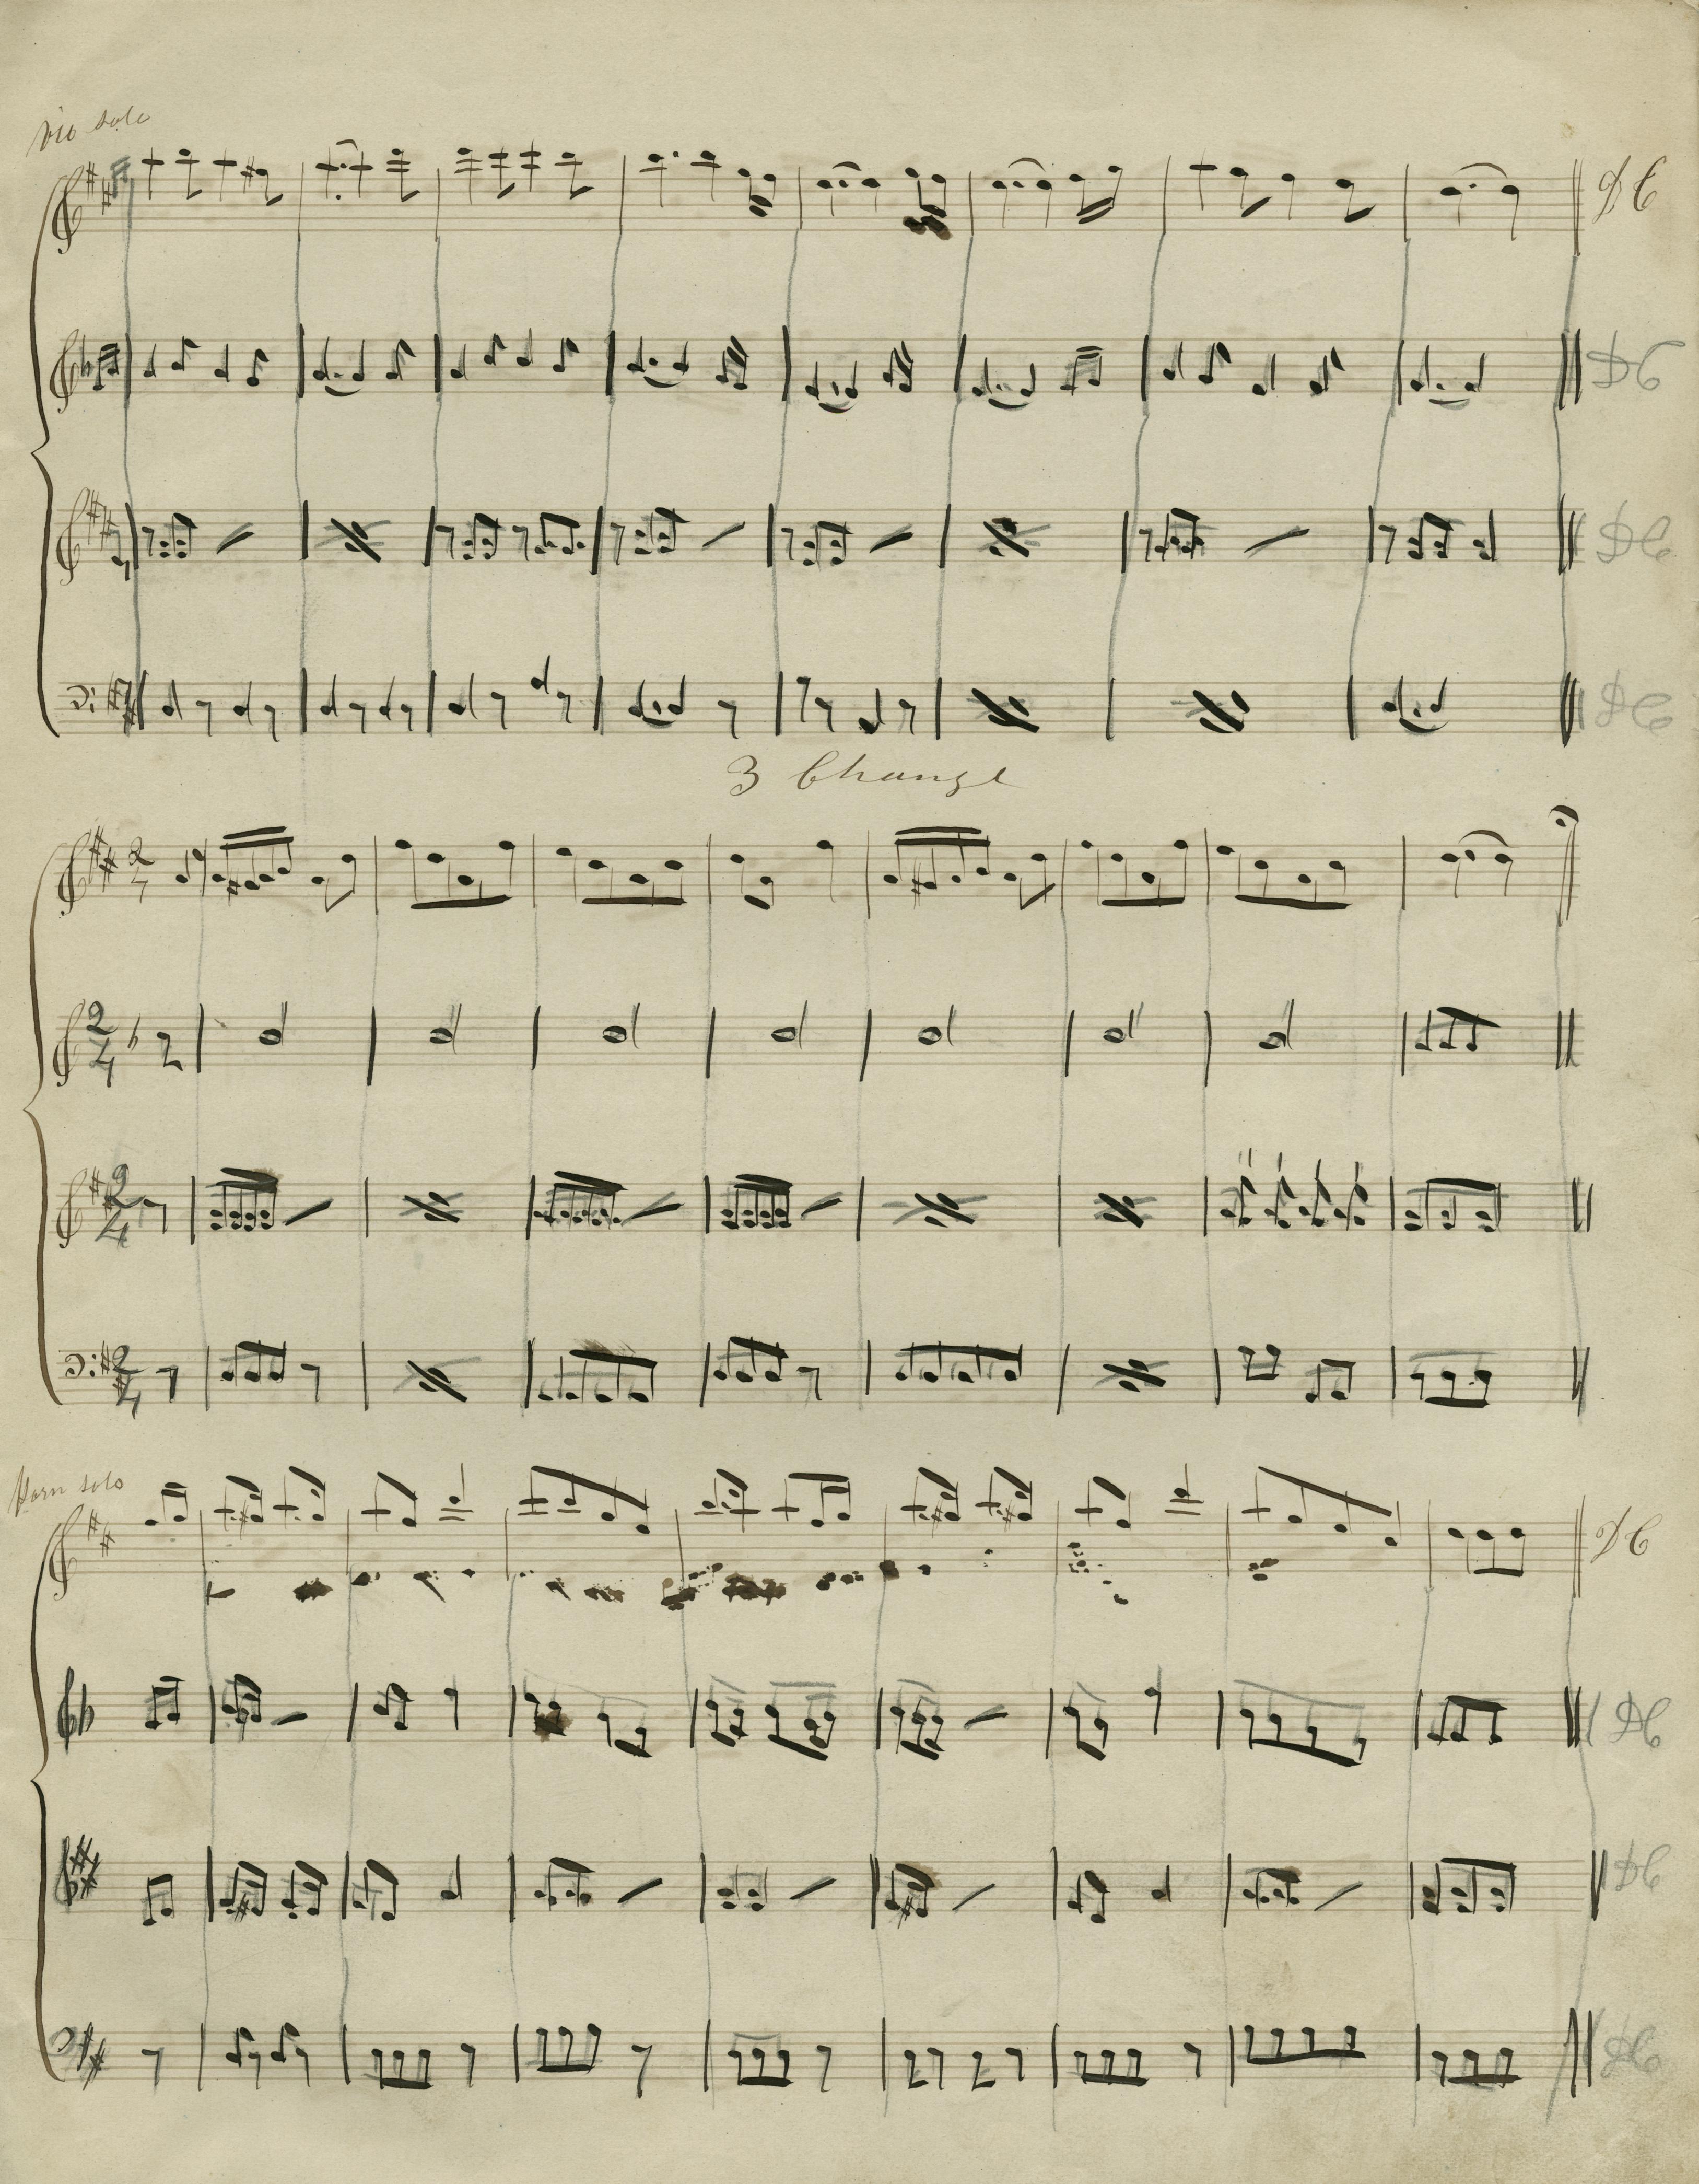 Vio solo
DC
DC
DC
DC
3 Change
2
4
2
4
2
4
2
4
Horn solo
DC
DC
DC
DC